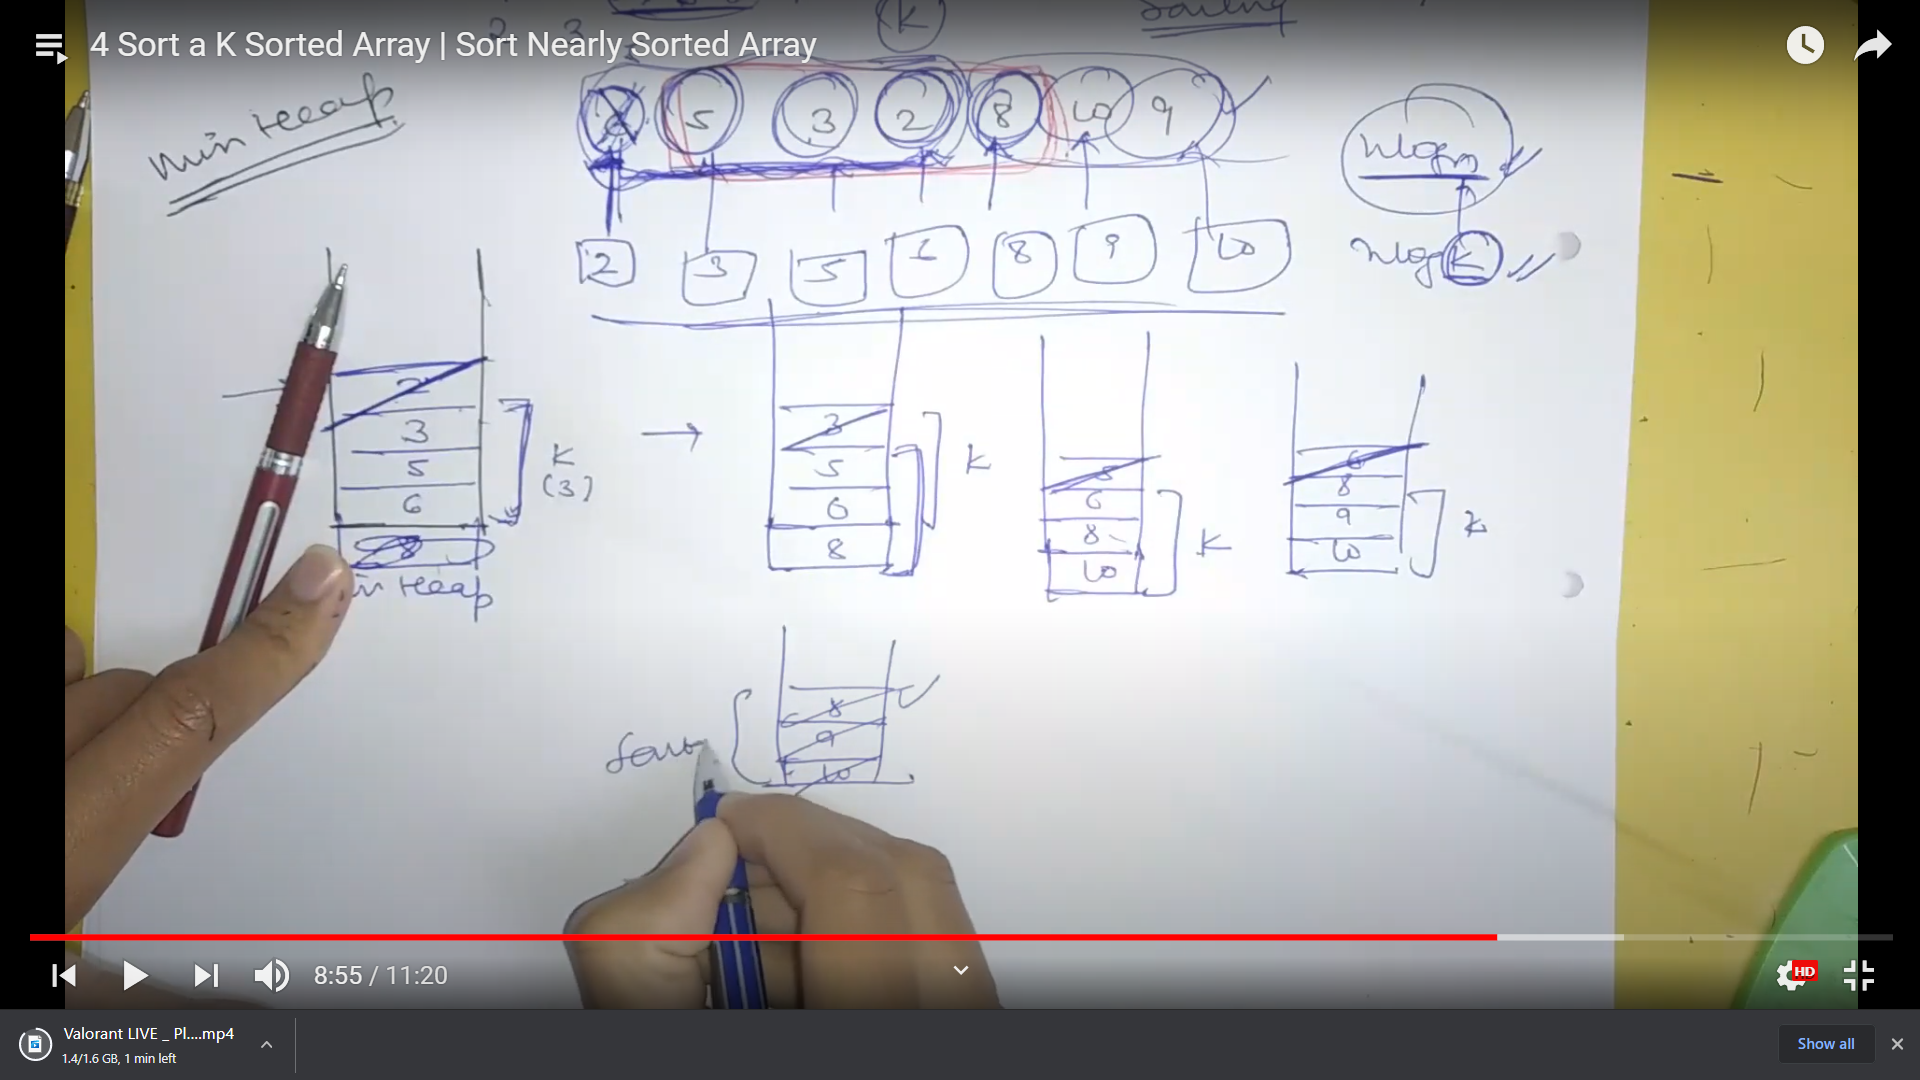 4 Sort a K Sorted Array | Sort Nearly Sorted Array
2 3 K
5 3 2 8 10 9
Min Heap
nlogn
2 3 5 6 8 9 10
nlog K
2
3
5
6
8
K
(3)
→
3
5
6
8
K
5
6
8
10
K
6
8
9
10
K
in Heap
8
9
10
8:55 / 11:20
HD
Valorant LIVE _ Pl....mp4
1.4/1.6 GB, 1 min left
Show all